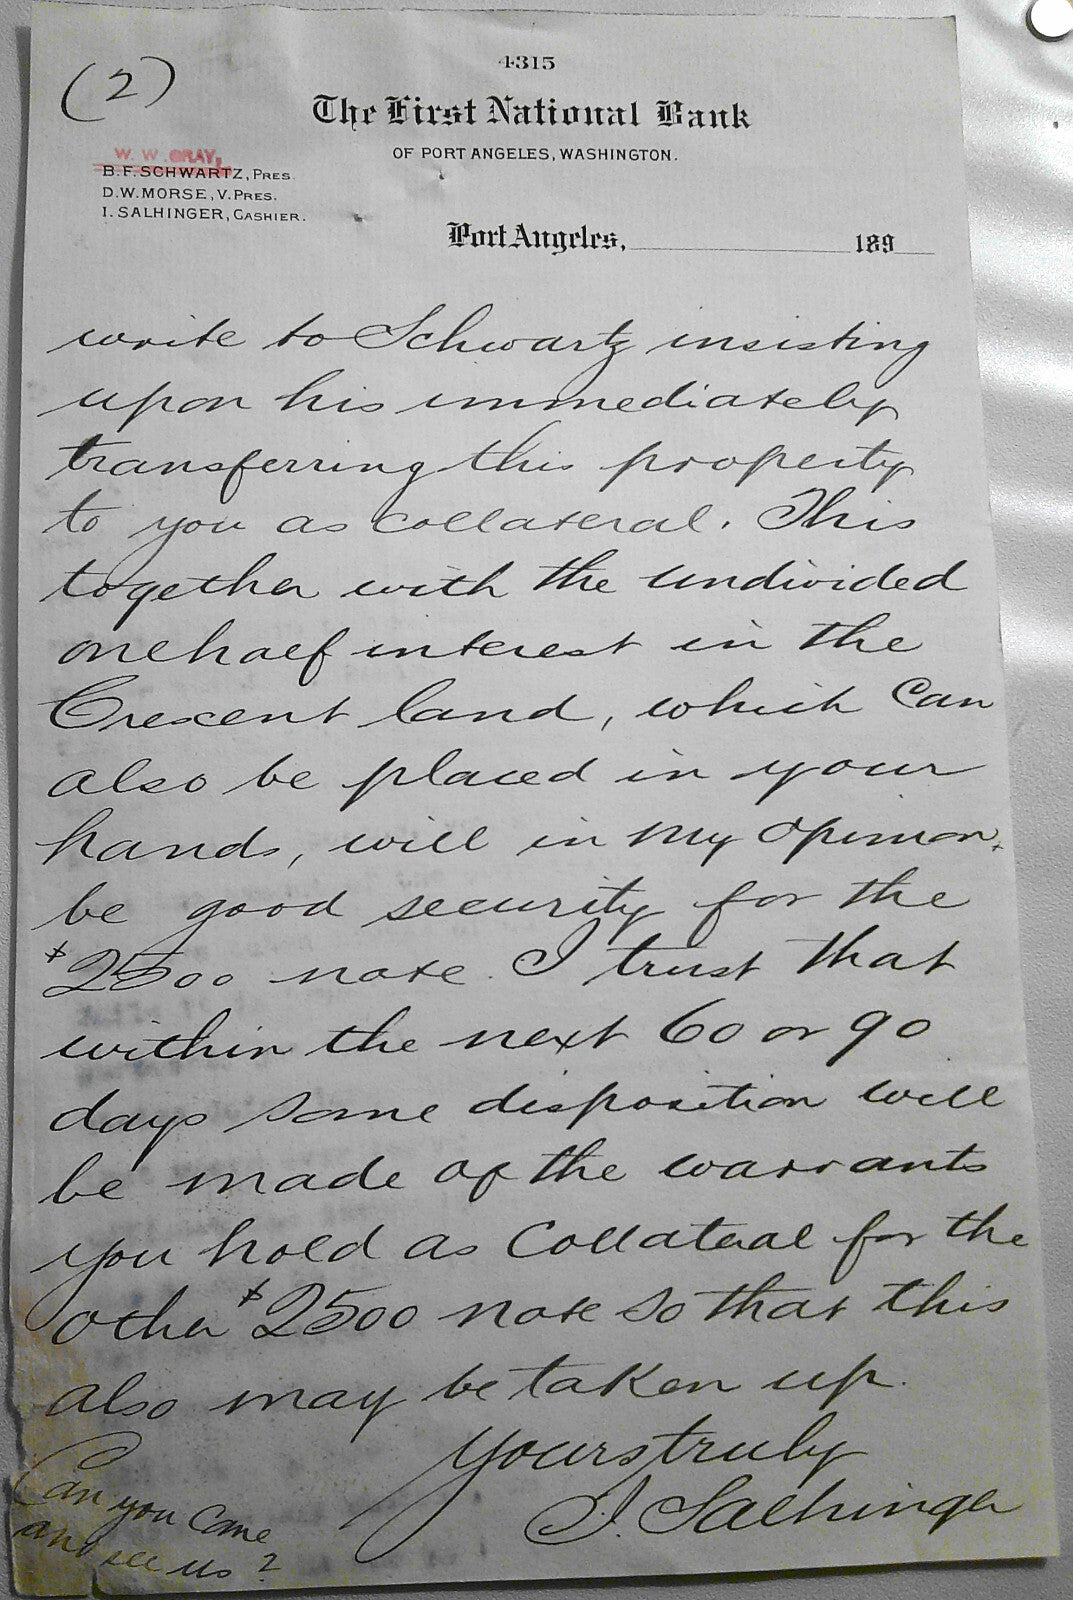 (2)
4315
The First National Bank
OF PORT ANGELES, WASHINGTON.
W. W. GRAY,
B. F. SCHWARTZ, PRES.
D. W. MORSE, V. PRES.
I. SALHINGER, CASHIER.
Port Angeles, 189
write to Schwartz insisting
upon his immediately
transferring this property
to you as collateral. This
together with the undivided
one half interest in the
Crescent land, which can
also be placed in your
hands, will in my opinion,
be good security for the
$2500 note. I trust that
within the next 60 or 90
days some disposition will
be made of the warrants
you hold as collateral for the
other $2500 note so that this
also may be taken up.
Yours truly
I. Salhinger
Can you come
and see us?